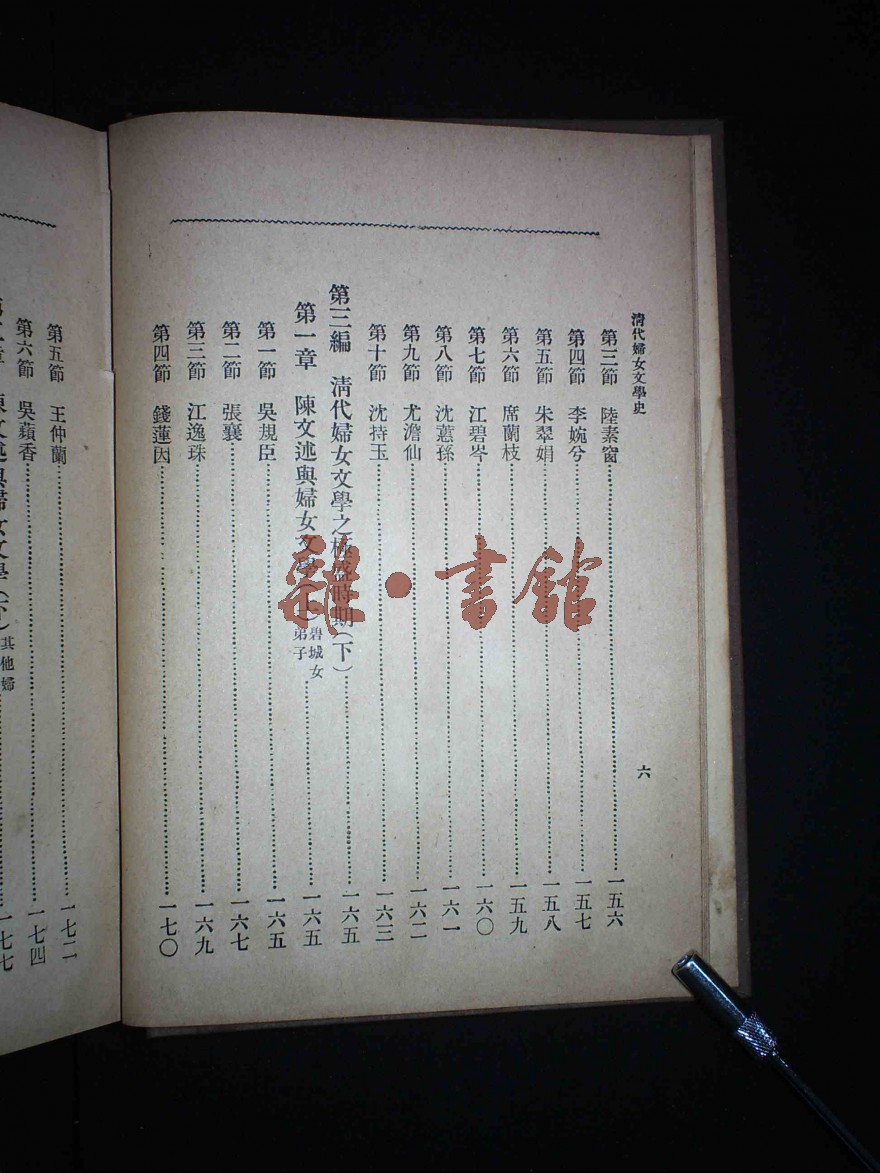 清代婦女文學史
六
第三節　陸素窗……一五六
第四節　李婉兮……一五七
第五節　朱翠娟……一五八
第六節　席蘭枝……一五九
第七節　江碧岑……一六〇
第八節　沈蕙孫……一六一
第九節　尤澹仙……一六二
第十節　沈持玉……一六三
第三編　清代婦女文學之極盛時期（下）……一六五
第一章　陳文述與婦女文學（上）碧城女弟子……一六五
第一節　吳規臣……一六五
第二節　張襄……一六七
第三節　江逸珠……一六九
第四節　錢蓮因……一七〇
第五節　王仲蘭……一七二
第六節　吳蘋香……一七四
陳文述與婦女文學（下）其他婦……一七七
書館